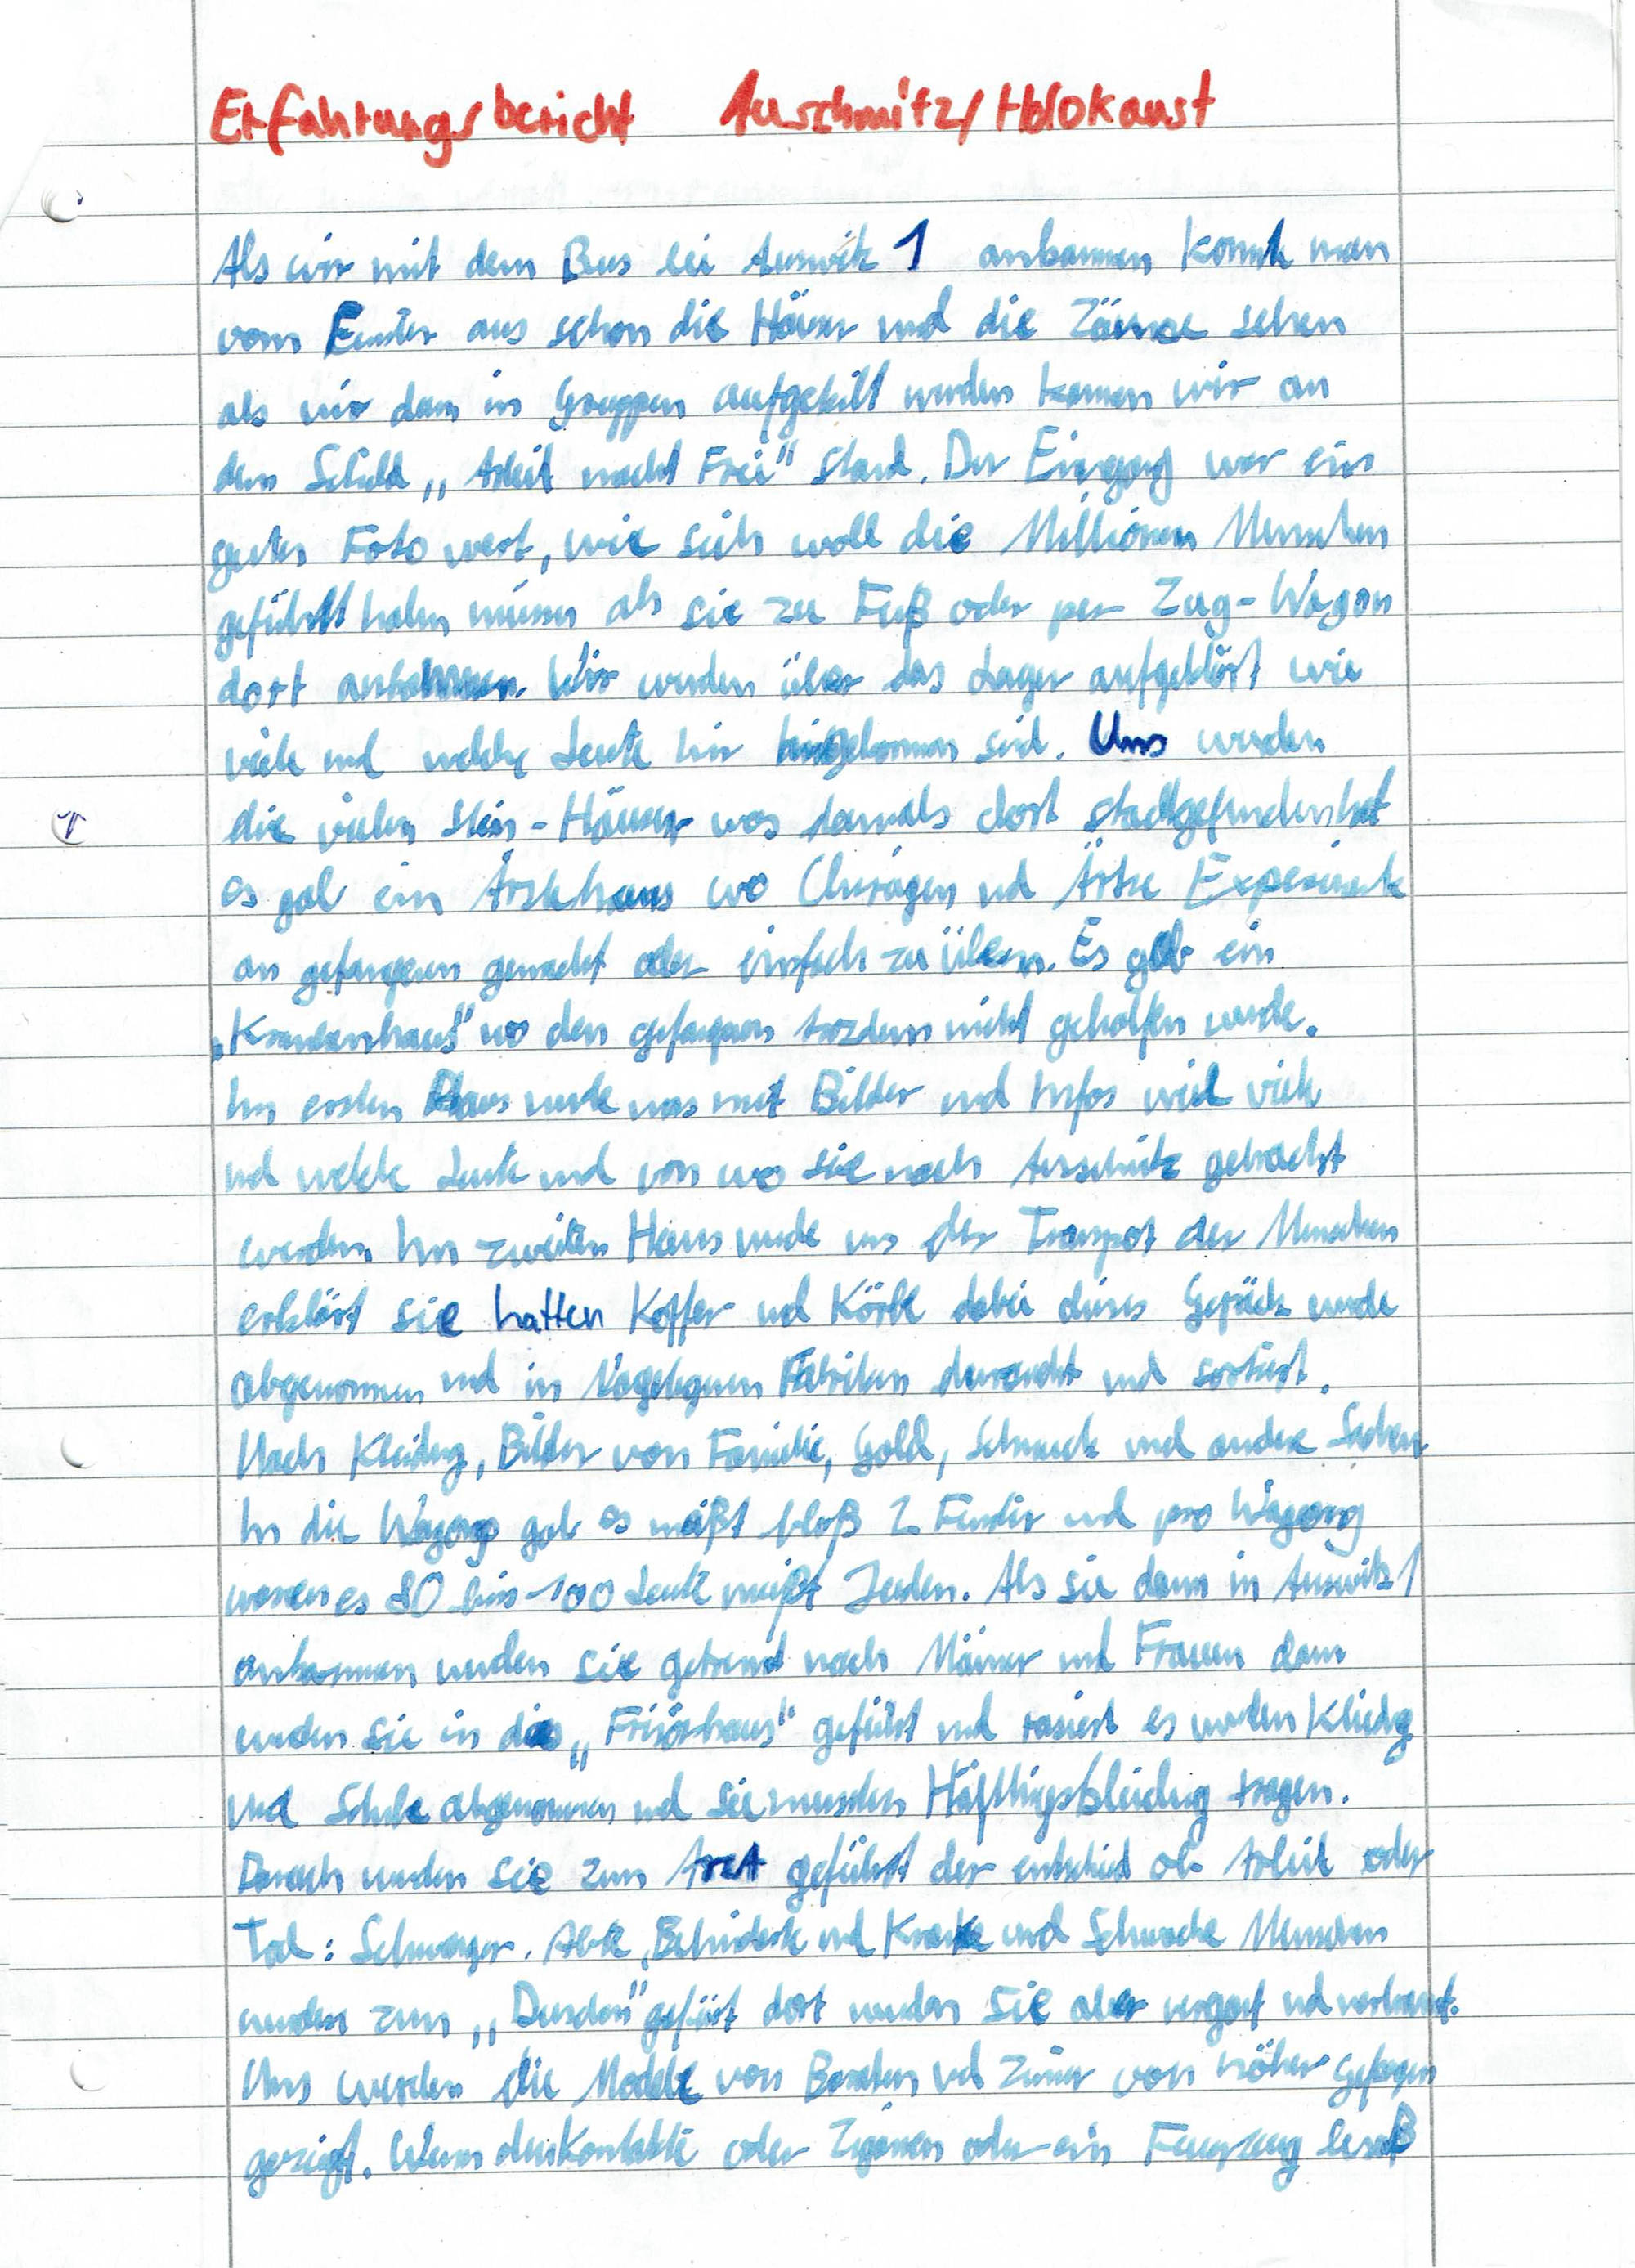 Erfahrungsbericht Auschmitz/Holokaust
Als wir mit dem Bus bei Auswitz 1 ankammen konnte man
vom Fenster aus schon die Häuser und die Zäune sehen
als wir dann in Gruppen aufgeteilt wurden kamen wir an
dem Schild „Arbeit macht Frei" stand. Der Eingang war ein
gutes Foto wert, wie sich woll die Millionen Menschen
gefühlt haben müssen als sie zu Fuß oder per Zug-Wagon
dort ankammen. Wir wurden über das Lager aufgeklärt wie
viele und welche Leute hir hingekommen sind. Uns wurden
die vielen Stein-Häuser was damals dort stattgefunden hat
es gab ein Ärztehaus wo Chirugen und Ärtze Experimente
an gefangenen gemacht oder einfach zu üben. Es gab ein
„Krankenhaus" wo den gefangenen trozdem nicht geholfen wurde.
Im ersten Haus wurde uns mit Bilder und Infos viele
und welche Leute und von wo sie nach Ausschwitz gebracht
werden Im zweiten Haus wurde uns der Transport der Menschen
erklärt sie hatten Koffer und Körbe dabei dieses Gepäck wurde
abgenommen und in Fabriken und sortiert.
Nach Kleidung, Bilder von Familie, Gold, Schmuck und andere Sachen
In die Wagong gab es meißt bloß 2 Fenster und pro Wagong
waren es 80 bis 100 Leute meißt Juden. Als sie dann in Auswitz 1
ankammen wurden sie getrennt nach Männer und Frauen dann
wurden sie in das „Frisörhaus" geführt und rasiert es wurden Kleidung
und Schuhe abgenommen und sie mussten Häftlingskleidung tragen.
Danach wurden sie zum Arzt geführt der entschied ob Arbeit oder
Tod: Schwanger, Alte, Behinderte und Kranke und Schwache Menschen
wurden zum „Duschen" geführt dort wurden sie aber vergast und verbrannt.
Uns werden die Modelle von Baracken und Zimmer von früher gefangen
gezeigt. Wenn du Kontakte oder Zigaren oder ein Feuerzeug besaß